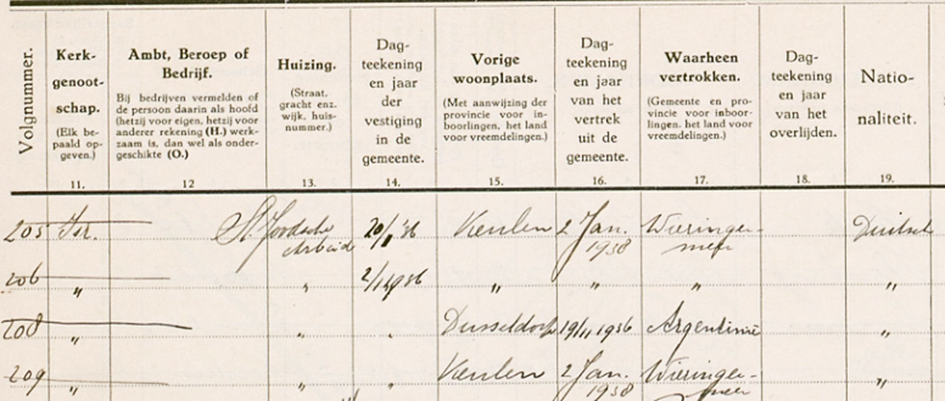 Volgnummer.
Kerk-
genoot-
schap.
(Elk be-
paald op-
geven.)
11.
Ambt, Beroep of
Bedrijf.
Bij bedrijven vermelden of
de persoon daarin als hoofd
(hetzij voor eigen, hetzij voor
anderer rekening (H.) werk-
zaam is, dan wel als onder-
geschikte (O.)
12
Huizing.
(Straat,
gracht enz.
wijk, huis-
nummer.)
13.
Dag-
teekening
en jaar
der
vestiging
in de
gemeente.
14.
Vorige
woonplaats.
(Met aanwijzing der
provincie voor in-
boorlingen, het land
voor vreemdelingen.)
15.
Dag-
teekening
en jaar
van het
vertrek
uit de
gemeente.
16.
Waarheen
vertrokken.
(Gemeente en pro-
vincie voor inboor-
lingen, het land voor
vreemdelingen.)
17.
Dag-
teekening
en jaar
van het
overlijden.
18.
Natio-
naliteit.
19.
205 Isr. St. Joodsche Arbeid 20/ '36 Keulen 2 Jan. 1938 Wieringer-meer Duitsch
206 " " " " " "
208 " " Dusseldorf 19/11 1936 Argentinië "
209 " " Keulen 2 Jan. 1938 Wieringer-meer "